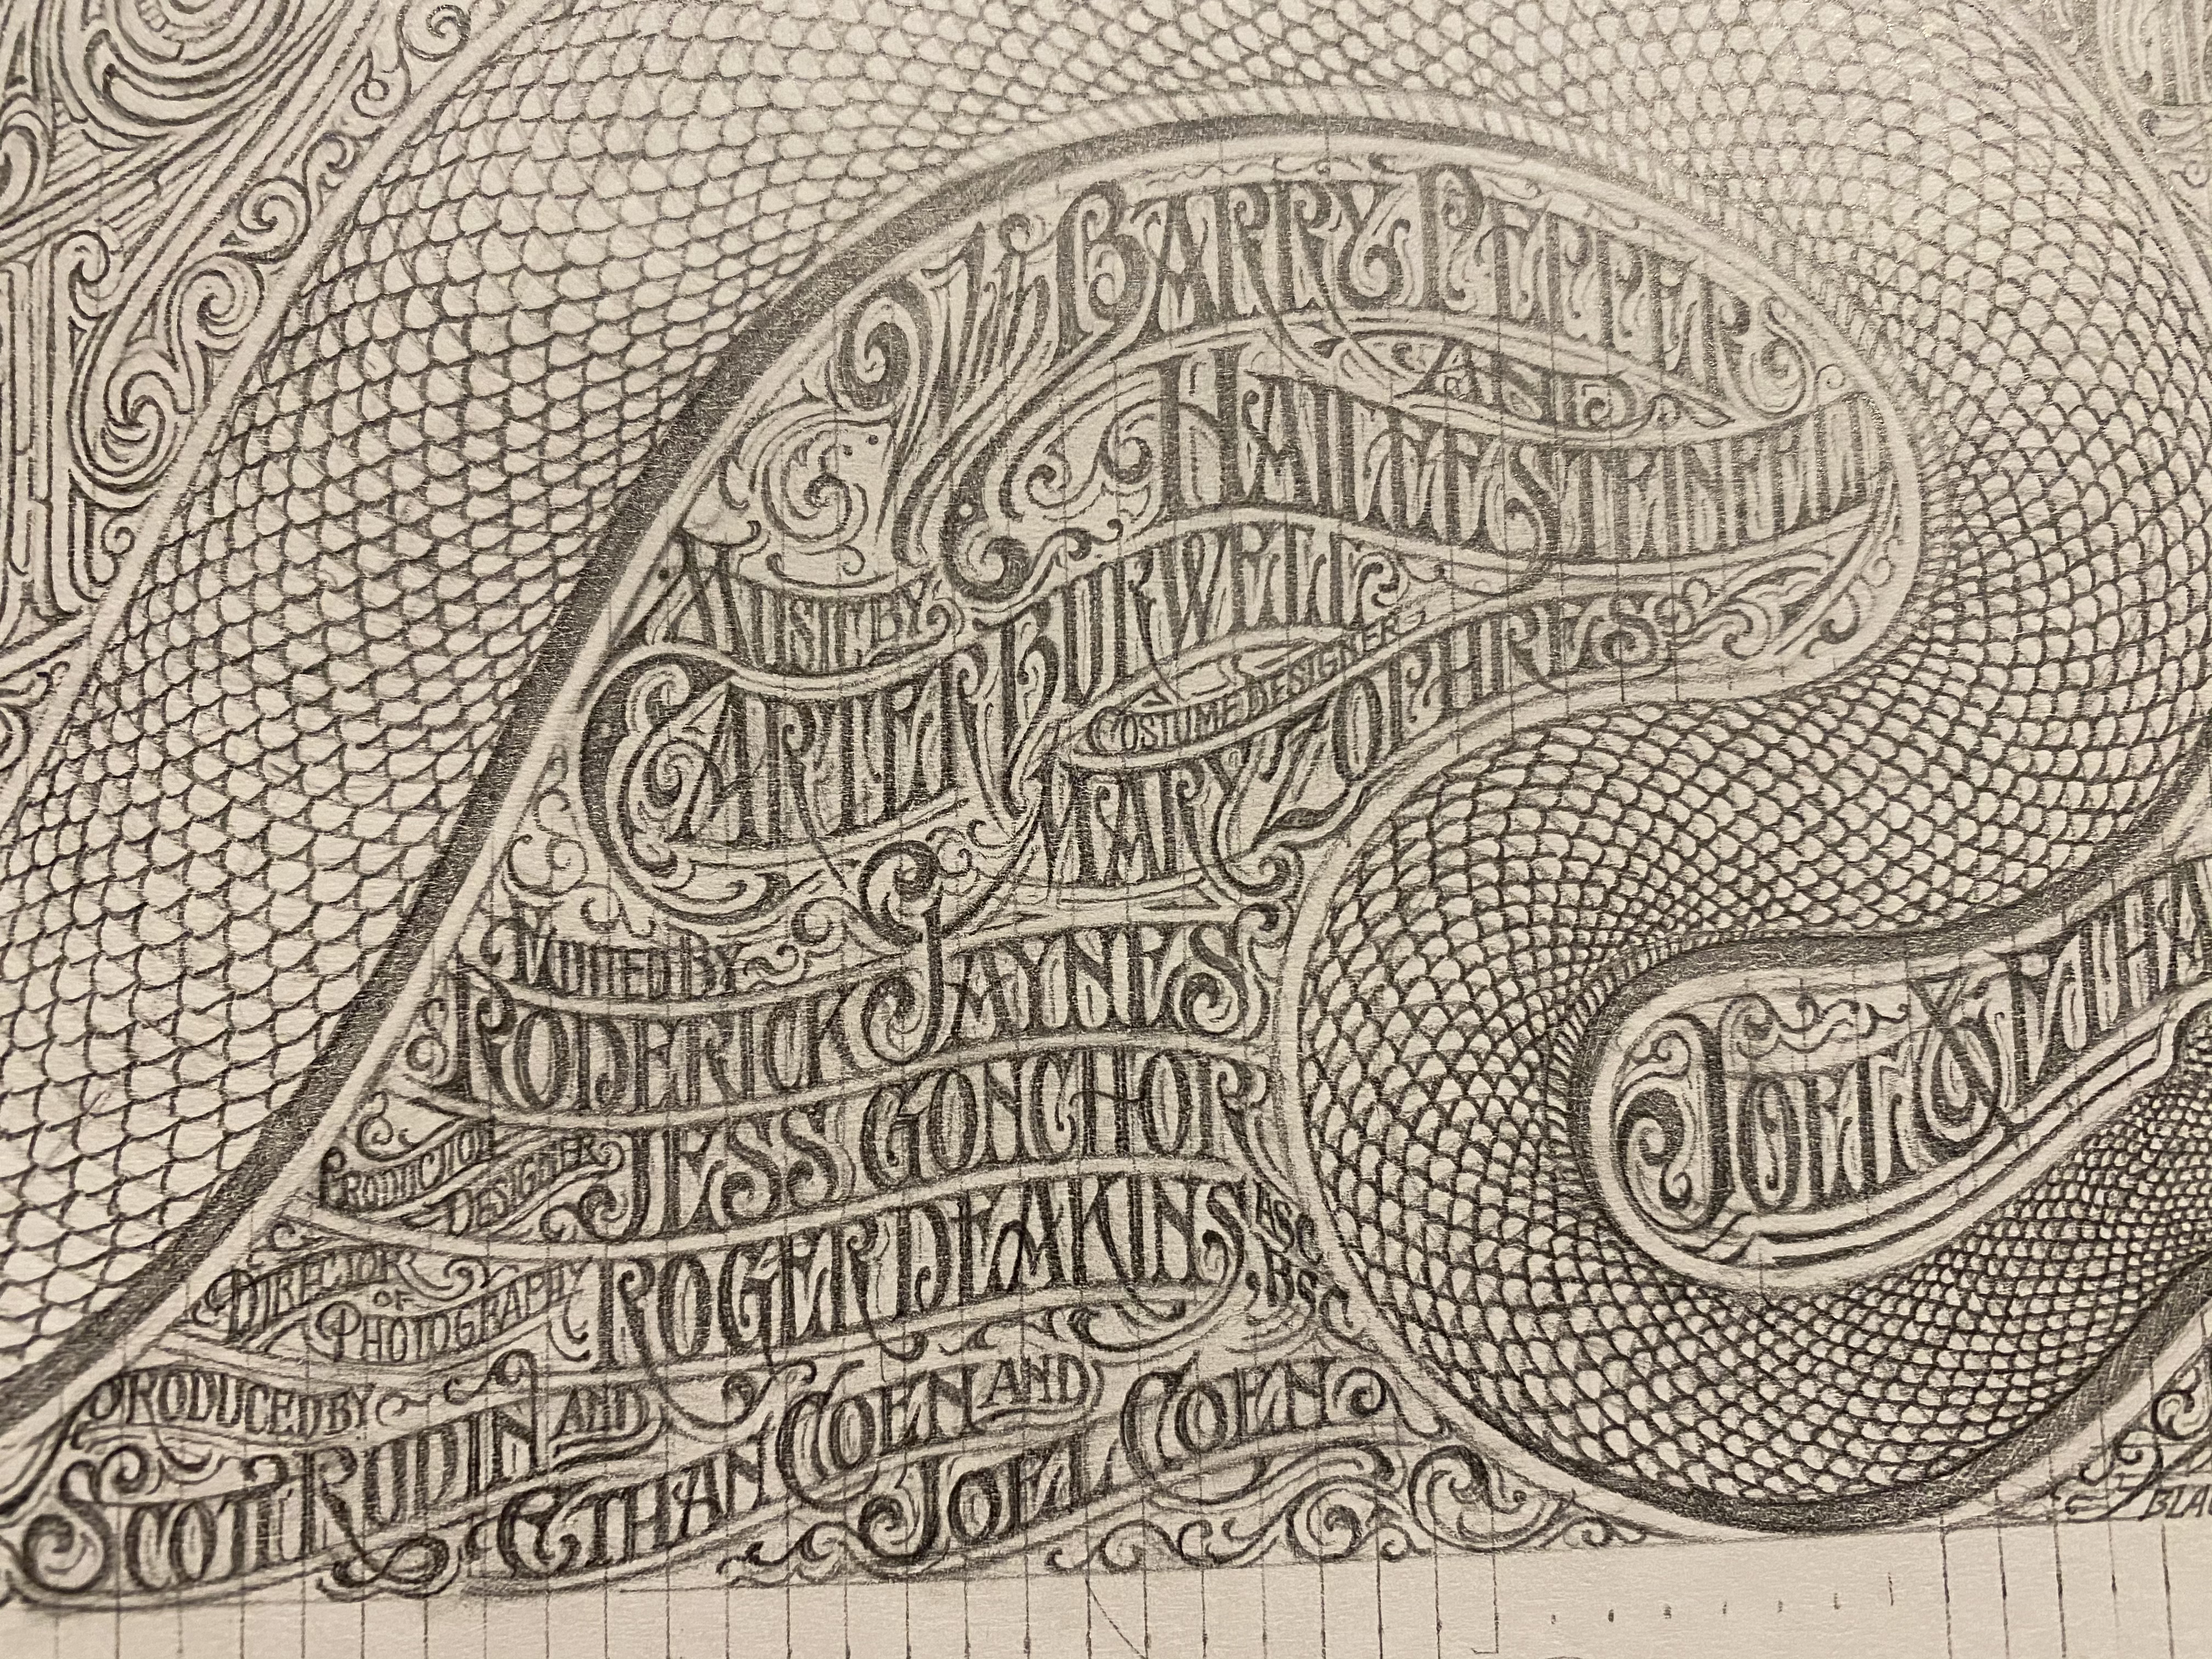 With Barry Pepper
and
Hailee Steinfeld
Music by
Carter Burwell
Costume Designer
Mary Zophres
Edited by
Roderick Jaynes
Production
Designer
Jess Gonchor
Director
of
Photography
Roger Deakins ASC,
BSC
Produced by
Scott Rudin and
Ethan Coen and
Joel Coen
Joel & Etha